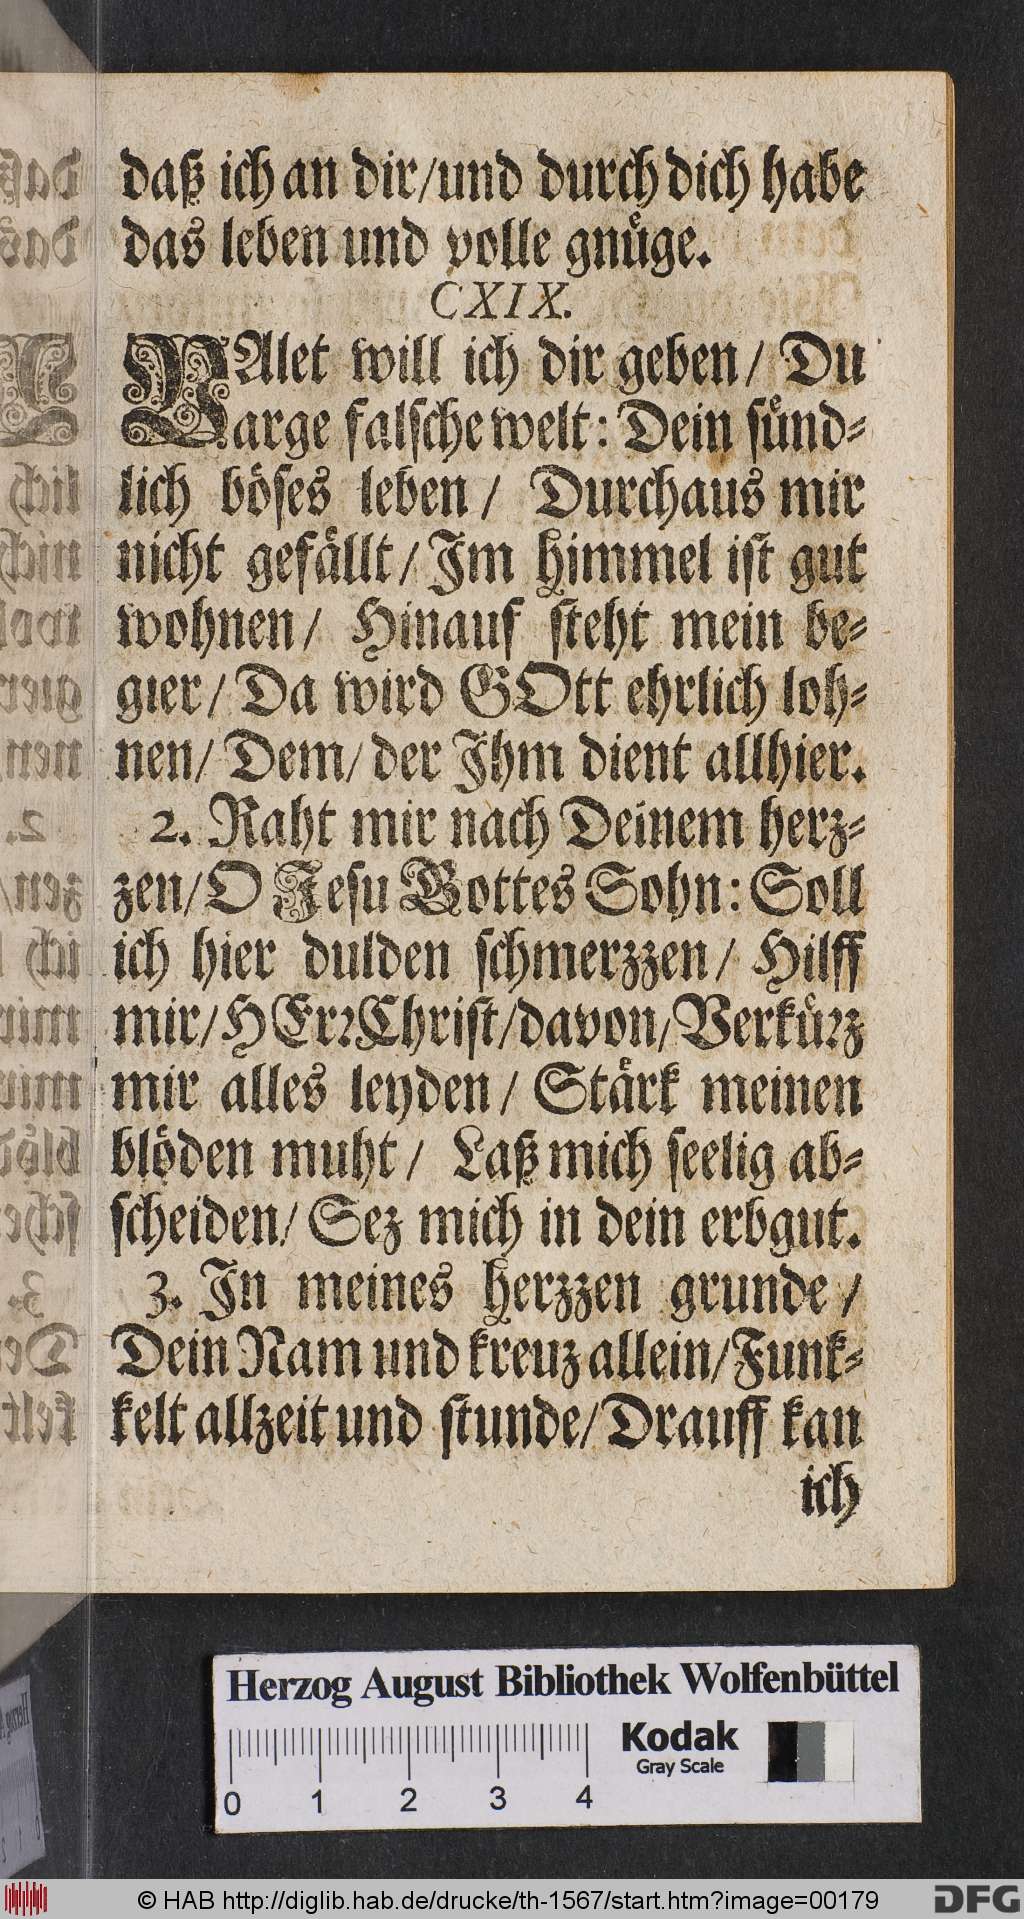 daß ich an dir/und durch dich habe
das leben und volle gnuͤge.
CXIX.
VAlet will ich dir geben/ Du
arge falsche welt: Dein suͤnd-
lich böses leben/ Durchaus mir
nicht gefällt/ Im Himmel ist gut
wohnen/ Hinauf steht mein be-
gier/ Da wird GOtt ehrlich loh-
nen/ Dem/ der Ihm dient allhier.
2. Raht mir nach Deinem herz-
zen/ O Jesu Gottes Sohn: Soll
ich hier dulden schmerzzen/ Hilff
mir/ HErr Christ/ davon/ Verkuͤrz
mir alles leyden/ Stärk meinen
blöden muht/ Laß mich seelig ab-
scheiden/ Sez mich in dein erbgut.
3. In meines herzzen grunde/
Dein Nam und kreuz allein/ Funk-
kelt allzeit und stunde/ Drauff kan
ich
Herzog August Bibliothek Wolfenbüttel
Kodak
Gray Scale
0 1 2 3 4
© HAB http://diglib.hab.de/drucke/th-1567/start.htm?image=00179
DFG